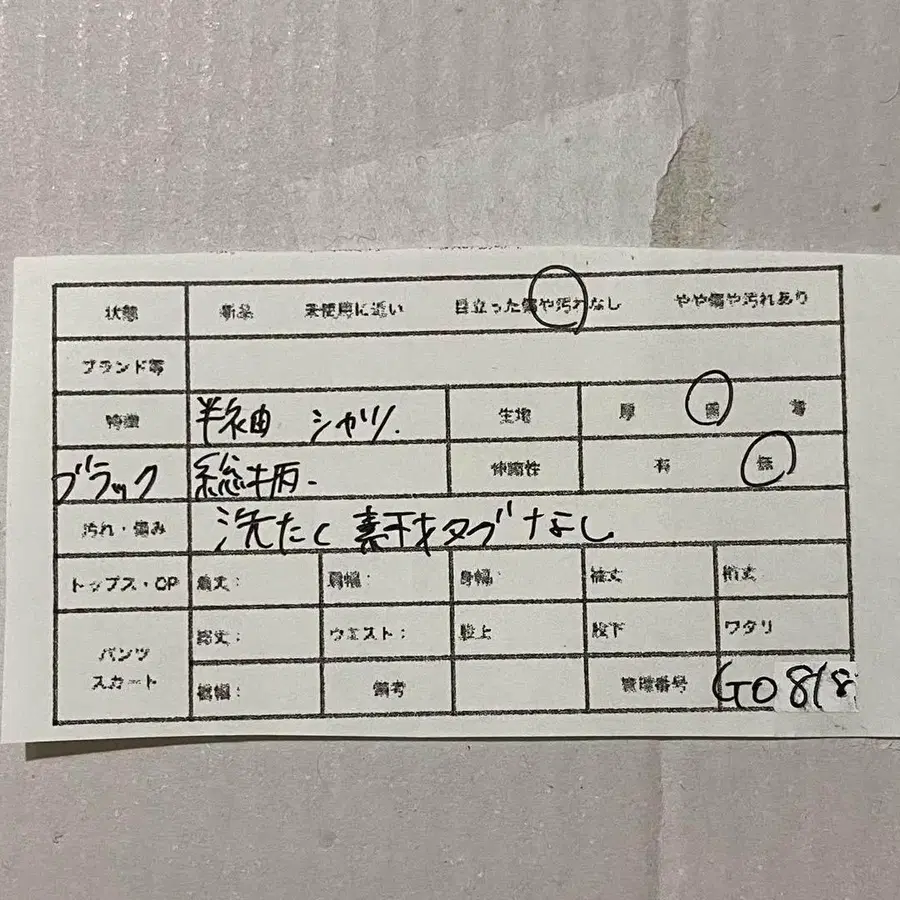 状態 新品 未使用に近い 目立った傷や汚れなし やや傷や汚れあり
ブランド等
特徴 半袖 シャツ. 生地 厚 普 薄
ブラック 総柄. 伸縮性 有 無
汚れ・傷み 洗たく 素材タグなし
トップス・OP 着丈: 肩幅: 身幅: 袖丈 裄丈
パンツ スカート
総丈: ウエスト: 股上 股下 ワタリ
裾幅: 備考 管理番号 GO818